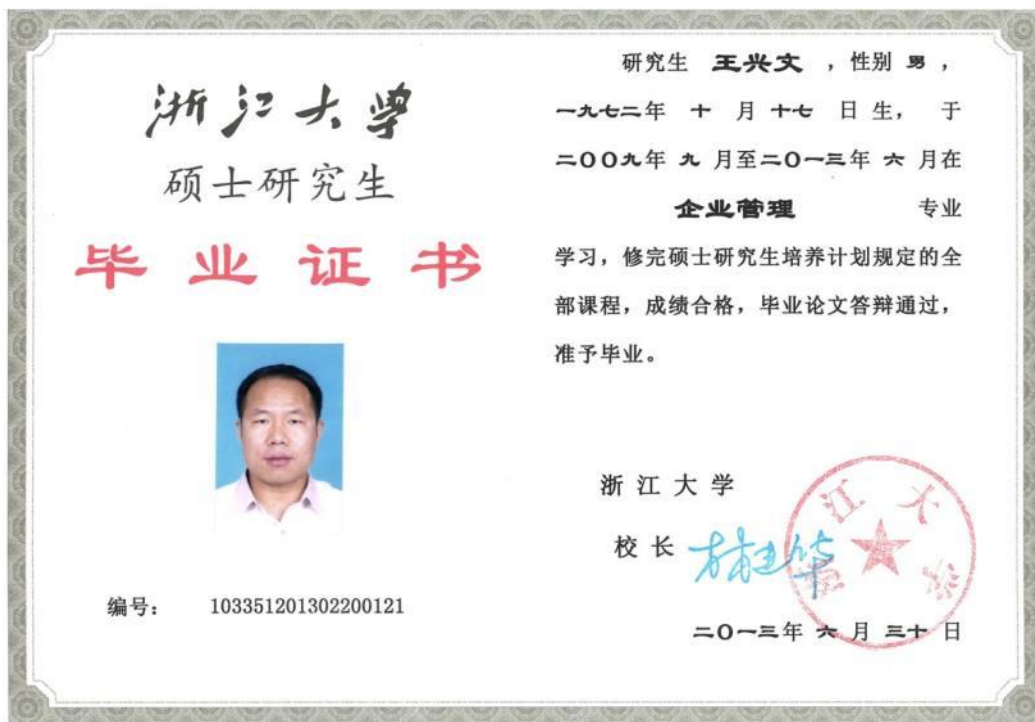 浙江大学
硕士研究生
毕业证书
编号: 103351201302200121
研究生 王兴文 ,性别 男 ,
一九七二年 十 月 十七 日 生, 于
二〇〇九年 九 月至二〇一三年 六 月在
企业管理 专业
学习,修完硕士研究生培养计划规定的全
部课程,成绩合格,毕业论文答辩通过,
准予毕业。
浙 江 大 学
校 长 林建华
二〇一三年 六 月 三十 日
浙江大学